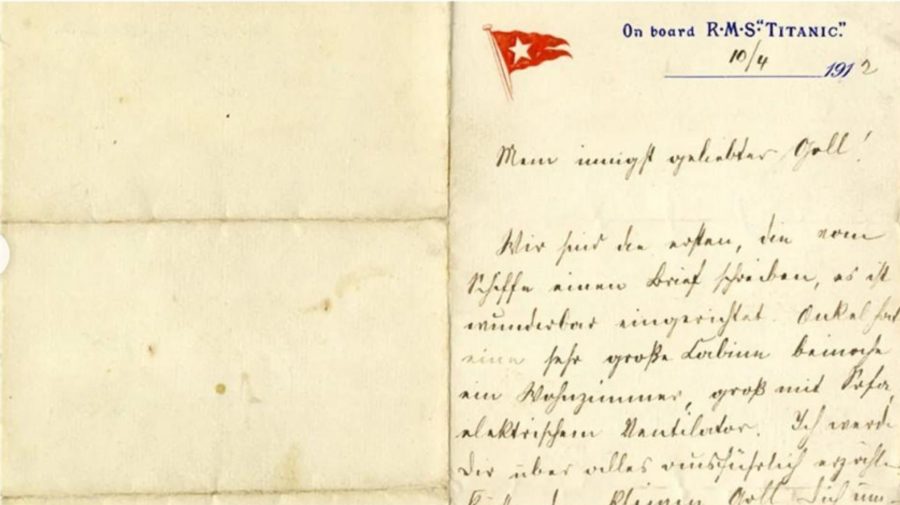 On board R·M·S·"TITANIC."
10/4 1912
Mein innigst geliebter Goll!
Wir sind die ersten, die vom
Schiffe einen Brief schreiben, es ist
wunderbar eingerichtet. Onkel hat
eine sehr große Cabine beinahe
ein Wohnzimmer, groß mit Sofa,
elektrischem Ventilator. Ich werde
Dir über alles ausführlich erzähle
Goll Dich um-